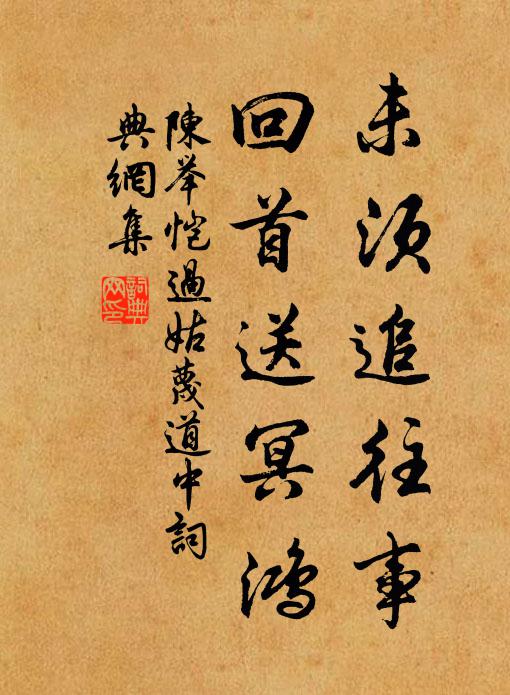 未須追往事
回首送冥鴻
陳举愷過姑蔑道中詞
典網集
詞典
网印